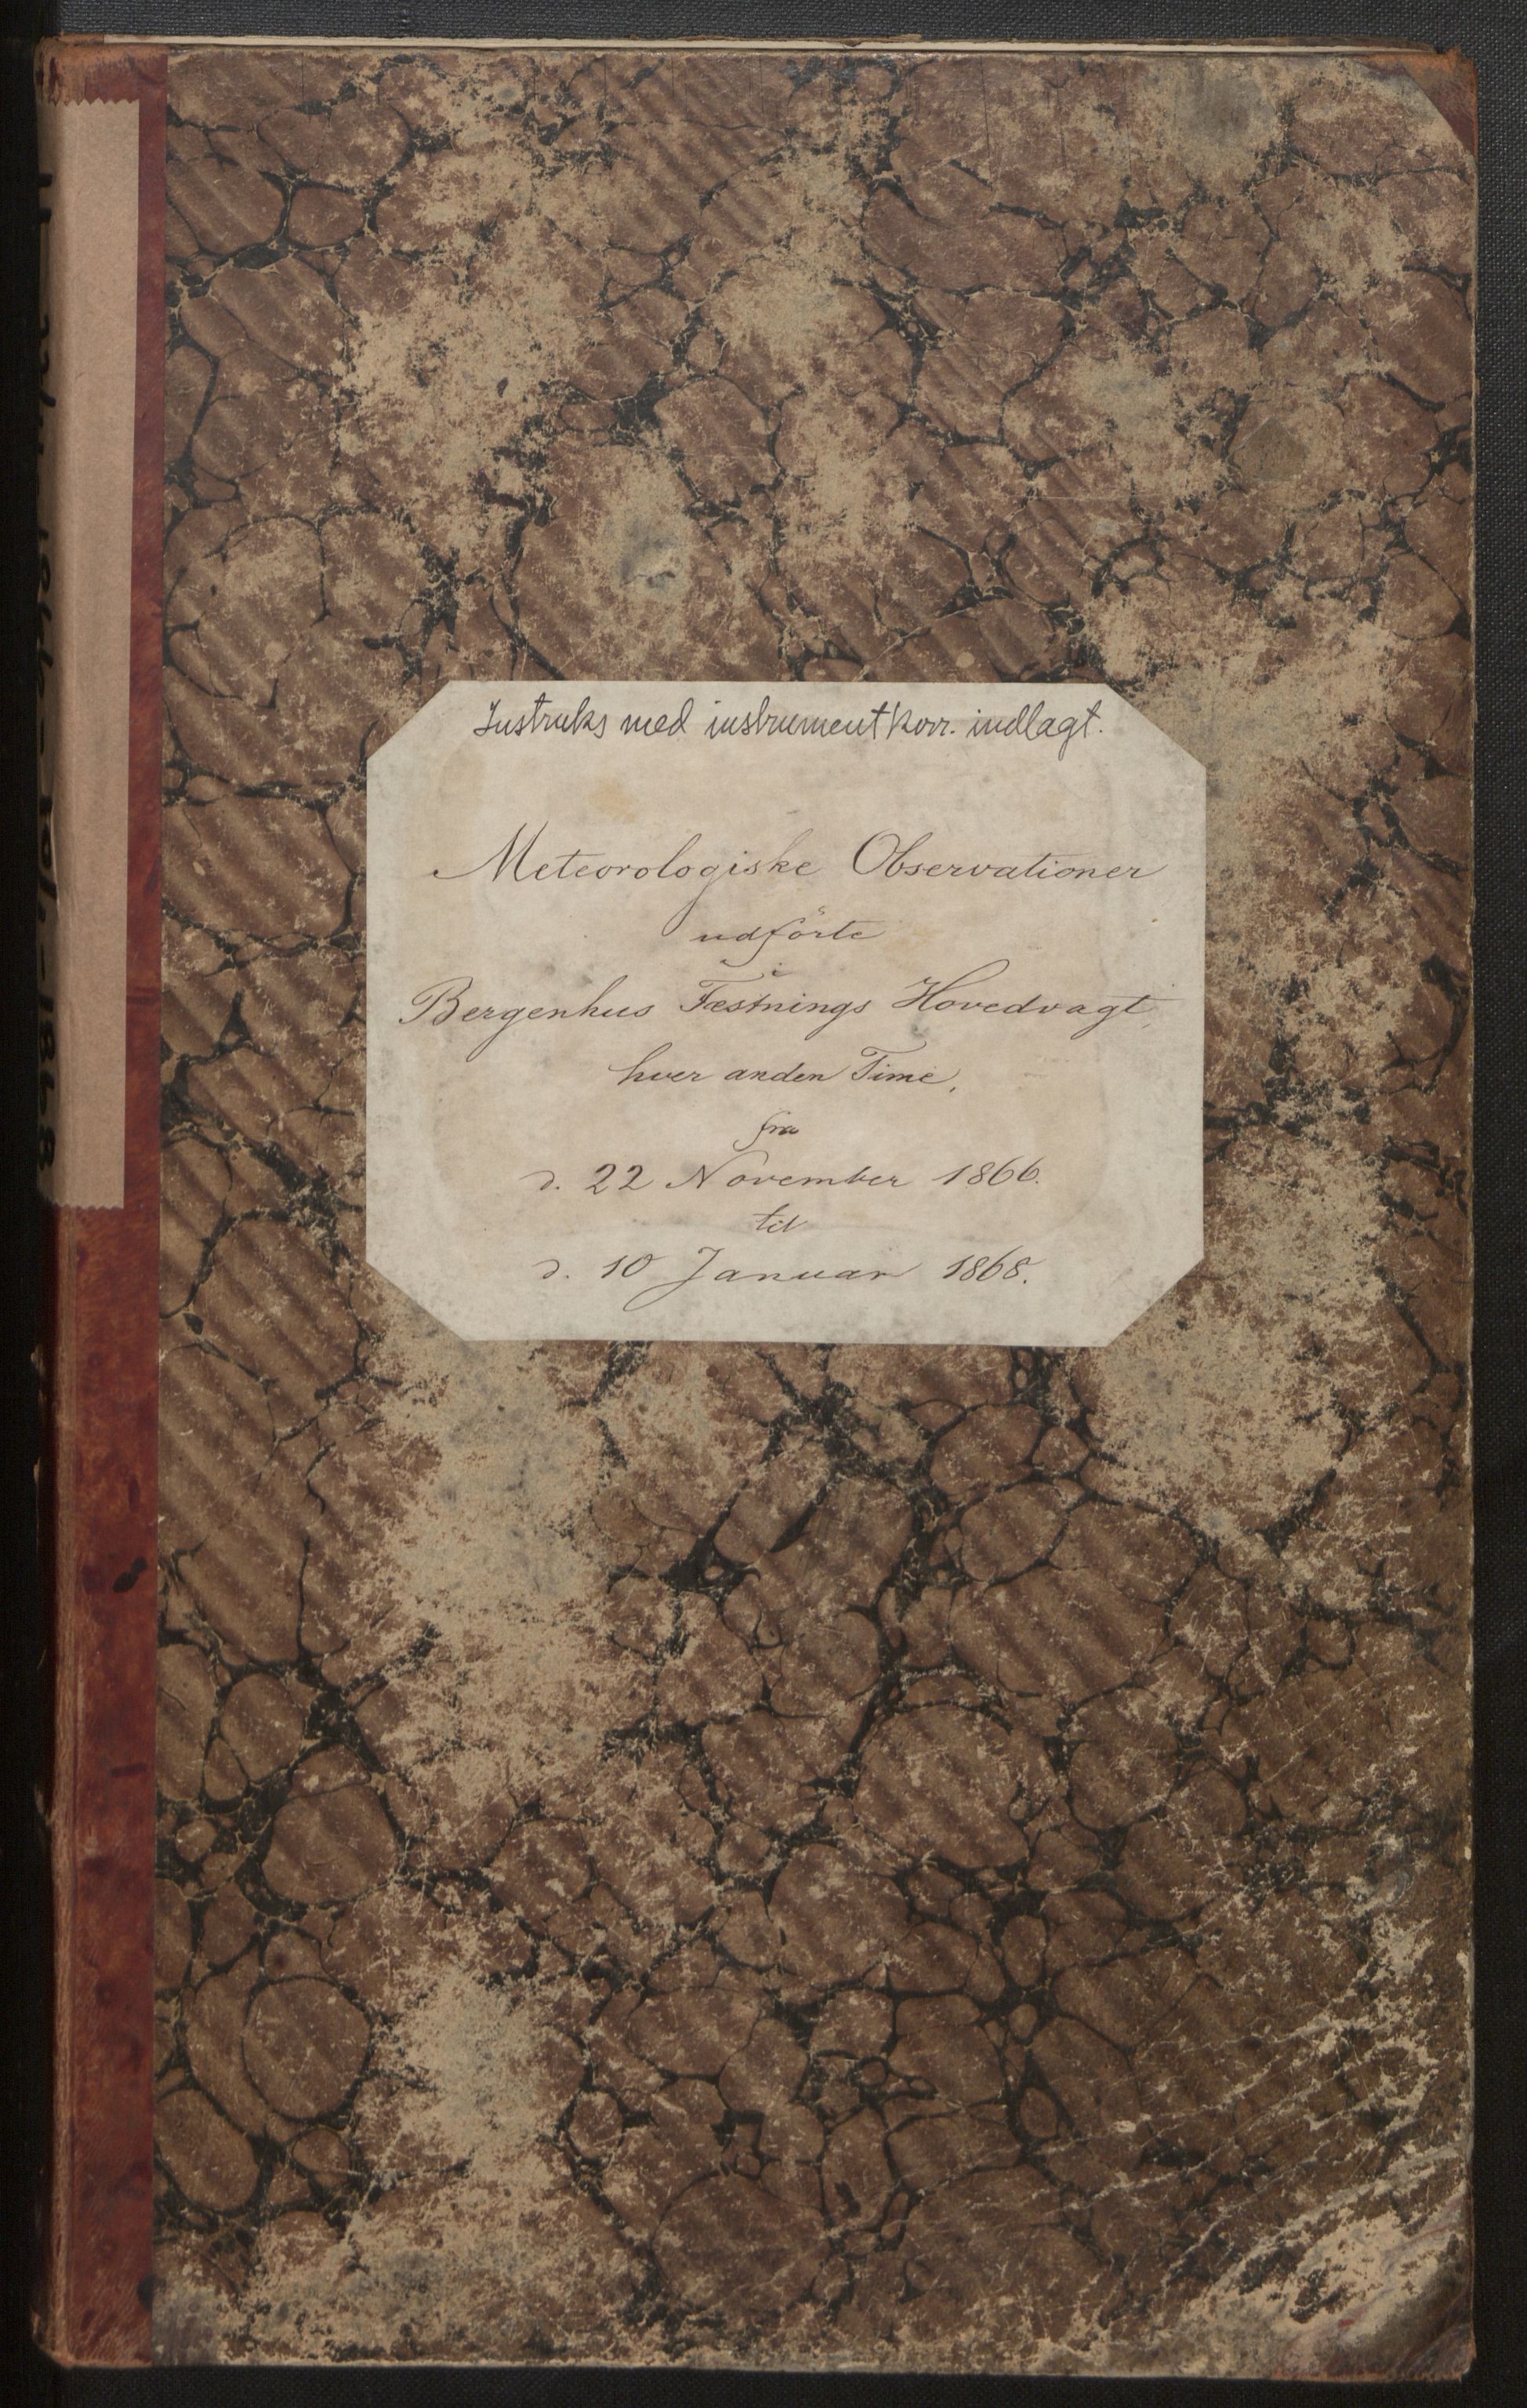 Instruks med instrumentkorr. indlagt.
Meteorologiske Observationer
udförte
i
Bergenhus Fæstnings Hovedvagt,
hver anden Time,
fra
d. 22 November 1866.
til
d. 10 Januar 1868.